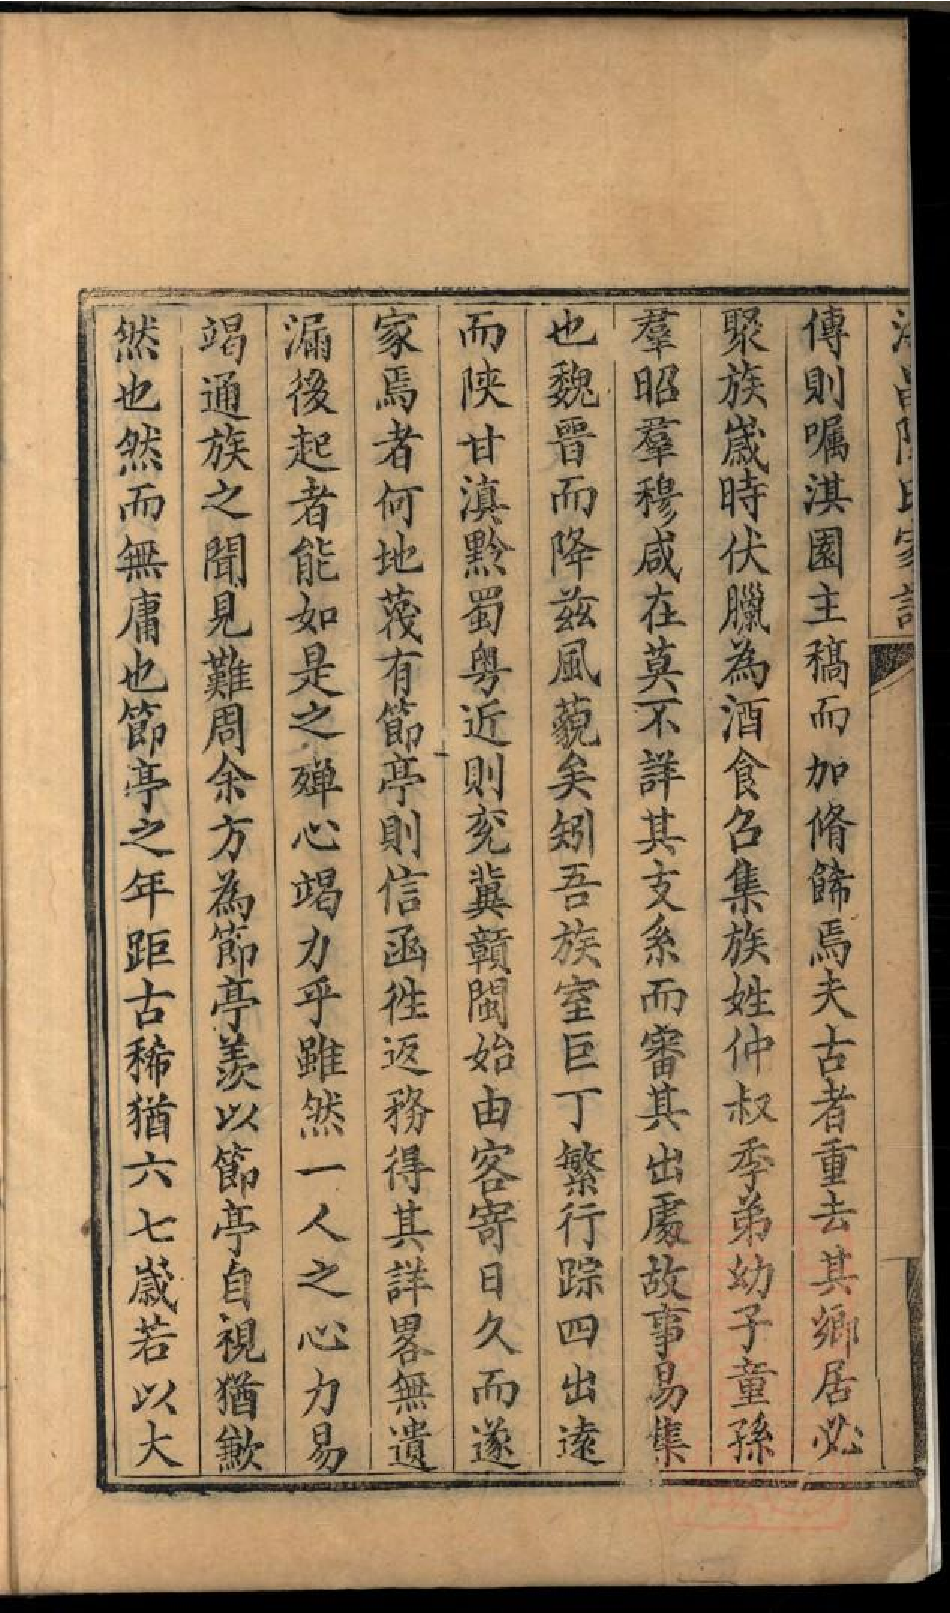 傳則嘱淇園主稿而加脩餙焉夫古者重去其鄉居必
聚族歲時伏臘為酒食召集族姓仲叔季弟幼子童孫
羣昭羣穆咸在莫不詳其支系而審其出處故事易集
也魏晉而降兹風藐矣矧吾族室巨丁繁行踪四出遠
而陕甘滇黔蜀粤近則兖冀贛閩始由客寄日久而遂
家焉者何地蔑有節亭則信函徃返務得其詳畧無遺
漏後起者能如是之殫心竭力乎雖然一人之心力易
竭通族之聞見難周余方為節亭羡以節亭自視猶歉
然也然而無庸也節亭之年距古稀猶六七歲若以大